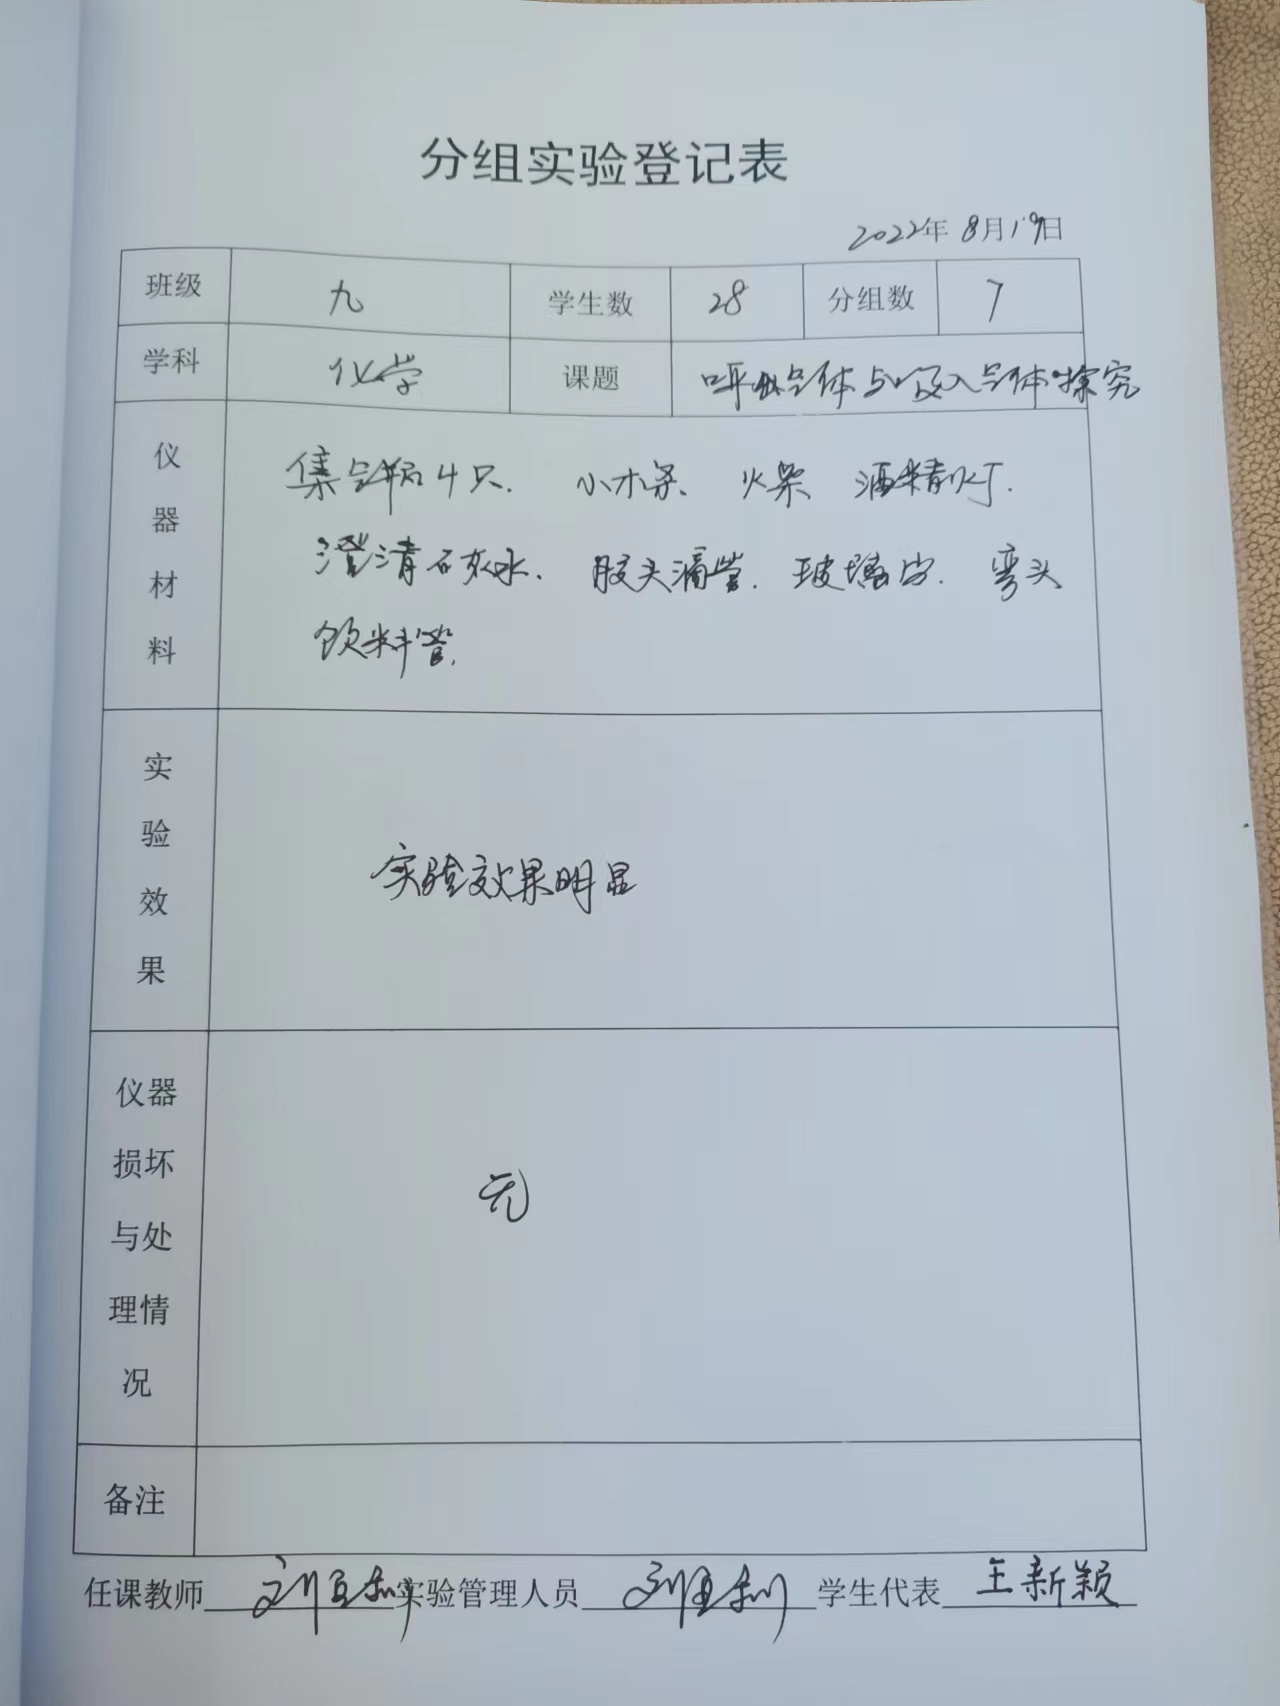 分组实验登记表
2022年 8月19日
班级 九 学生数 28 分组数 7
学科 化学 课题 呼出气体与吸入气体探究
仪器材料
集气瓶4只. 小木条、 火柴 酒精灯.
澄清石灰水. 胶头滴管. 玻璃片. 弯头
饮料管.
实验效果
实验效果明显
仪器损坏与处理情况
无
备注
任课教师 刘玉利 实验管理人员 刘玉利 学生代表 王新颖